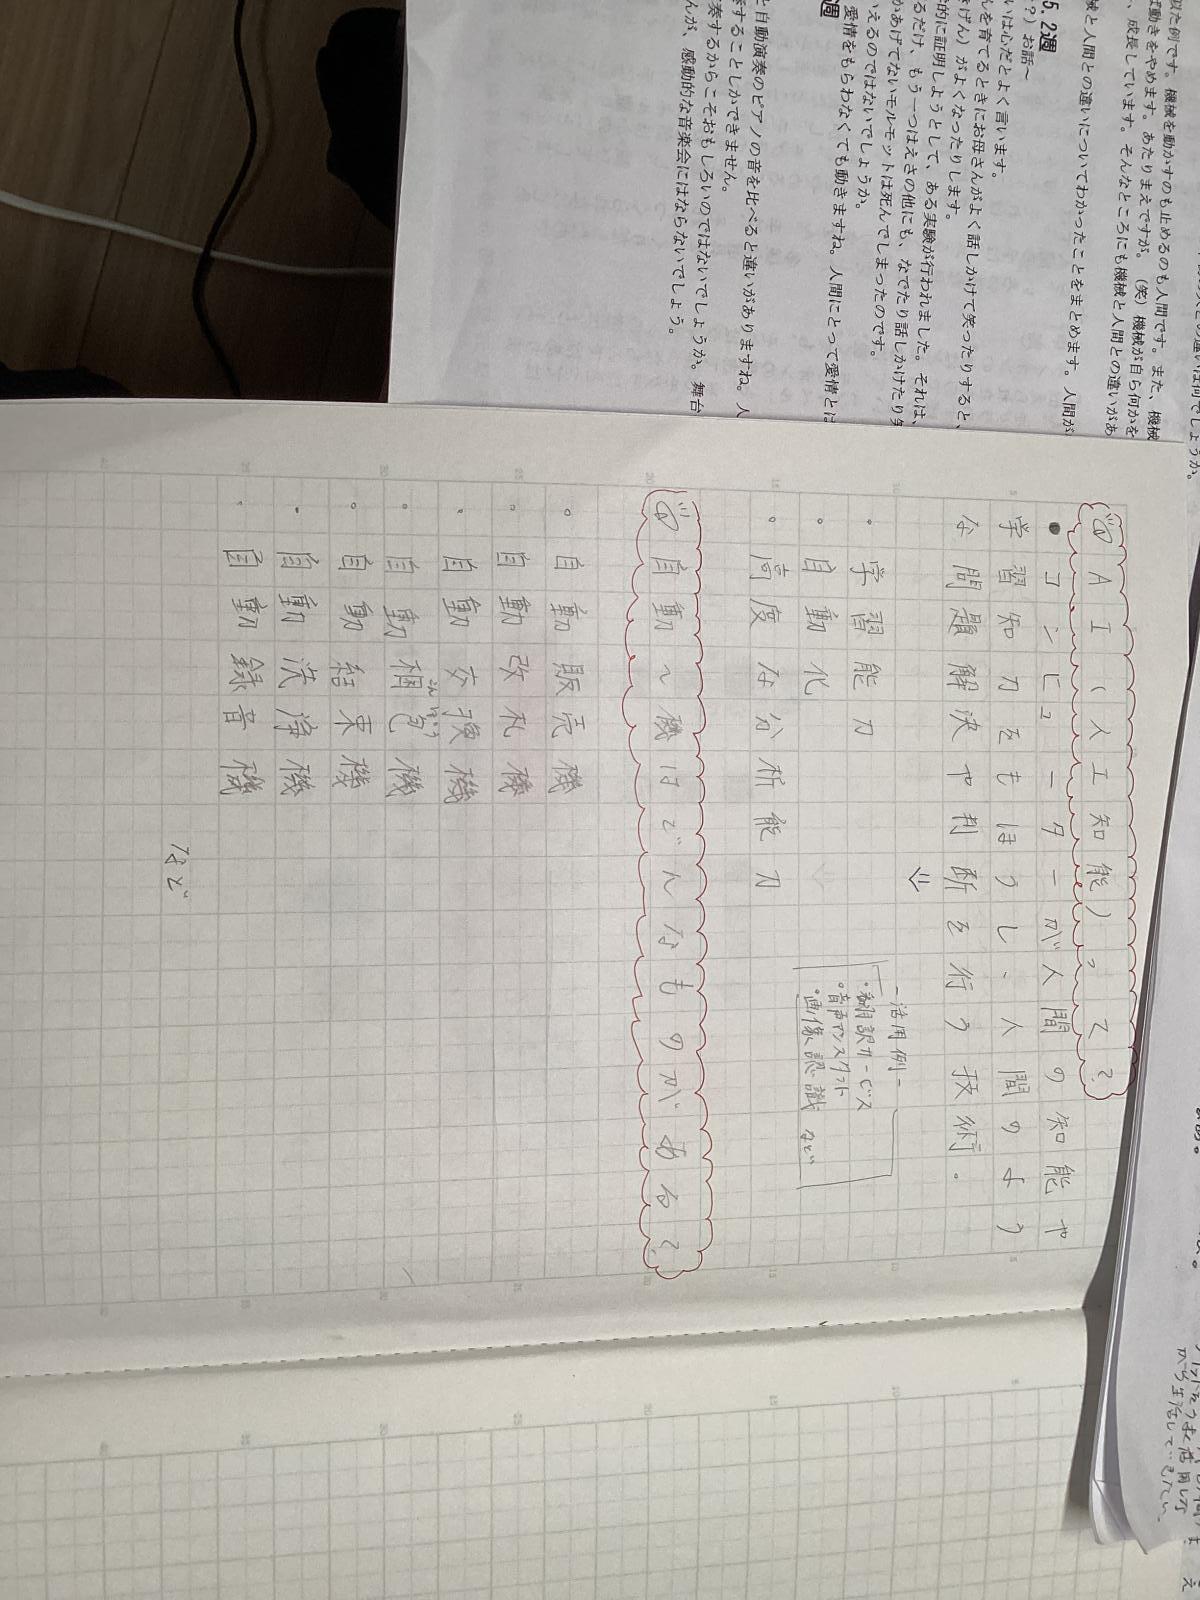 似た例です。機械を動かすのも止めるのも人間です。また、機械
ば動きをやめます。あたりまえですが。（笑）機械が自ら何かを
、成長しています。そんなところにも機械と人間との違いがあ
械と人間との違いについてわかったことをまとめます。人間が
5.2週
?）お話～
いは心だとよく言います。
んを育てるときにお母さんがよく話しかけて笑ったりすると、
げん）がよくなったりします。
的に証明しようとして、ある実験が行われました。それは、
るだけ、もう一つはえさの他にも、なでたり話しかけたり
かあげてないモルモットは死んでしまったのです。
いえるのではないでしょうか。
愛情をもらわなくても動きますね。人間にとって愛情とは
週
と自動演奏のピアノの音を比べると違いがありますね。人
奏することしかできません。
奏するからこそおもしろいのではないでしょうか。舞台
んが、感動的な音楽会にはならないでしょう。
AI（人工知能）って？
●コンピューターが人間の知能や
学習知力をもほうし、人間のよう
な問題解決や判断を行う技術.
⇓
・学習能力
・自動化
・高度な分析能力
-活用例-
・翻訳サービス
・音声アシスタント
・画像認識 など
自動〜機はどんなものがある？
・自動販売機
・自動改札機
・自動交換機
・自動梱包機
こんぽう
・自動結束機
・自動洗浄機
・自動録音機
など
から生活していきたい。